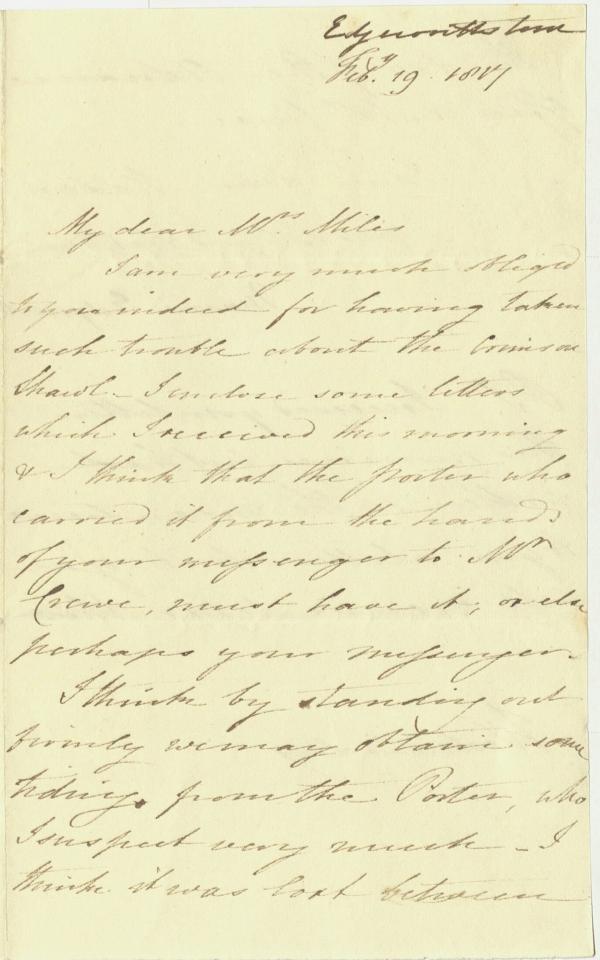 Edgeworthstown
Feby. 19. 1817
My dear Mrs. Miles
I am very much obliged
to you indeed for having taken
such trouble about the Crimson
Shawl - I enclose some letters
which I received this morning
& I think that the porter who
carried it from the hands
of your messenger to Mr
Crewe, must have it, or else
perhaps your messenger.
I think by standing out
firmly we may obtain some
tiding from the Porter, who
I suspect very much - I
think it was lost between